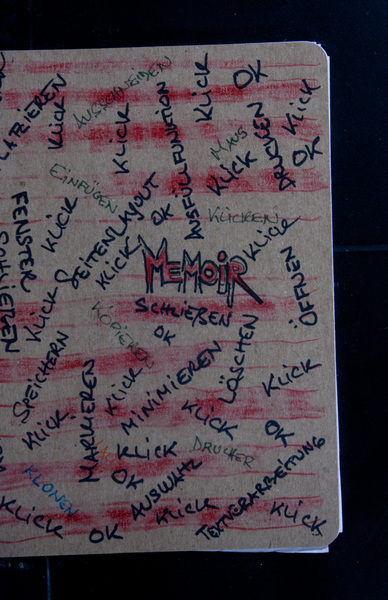 PLATZIEREN
KLICK
AUSSCHNEIDEN
KLICK
AUSFÜLLFUNKTION
KLICK
OK
KLICK
OK
DRUCKEN
MAUS
KLICK
EINFÜGEN
KLICK
SEITENLAYOUT
OK
KLICKEN
KLICK
FENSTER
KLICK
KLICK
MEMOIR
ÖFFNEN
SCHLIEßEN
OK
KOPIEREN
SPEICHERN
KLICK
MARKIEREN
KLICK
MINIMIEREN
LÖSCHEN
KLICK
KLICK
OK
KLICK
DRUCKER
OK
AUSWAHL
KLONEN
KLICK
OK
KLICK
TEXTVERARBEITUNG
KLICK